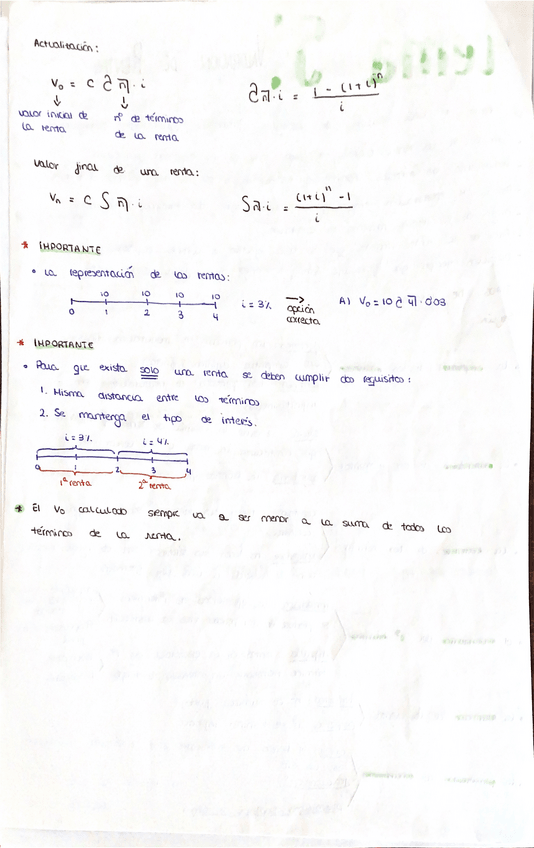 Actualización:
V₀ = C a n┐·i
a n┐·i = 1 - (1+i)ⁿ / i
valor inicial de la renta
nº de términos de la renta
valor final de una renta:
Vₙ = C S n┐·i
S n┐·i = (1+i)ⁿ -1 / i
* IMPORTANTE
• La representación de las rentas:
10 10 10 10
0 1 2 3 4
i = 3% → opción correcta
A) V₀ = 10 a 4┐·0'03
* IMPORTANTE
• Para que exista solo una renta se deben cumplir dos requisitos:
1. Misma distancia entre los términos
2. Se mantenga el tipo de interés.
i = 3% i = 4%
0 1 2 3 4
1ª renta 2ª renta
* El V₀ calculado siempre va a ser menor a la suma de todos los
términos de la renta.